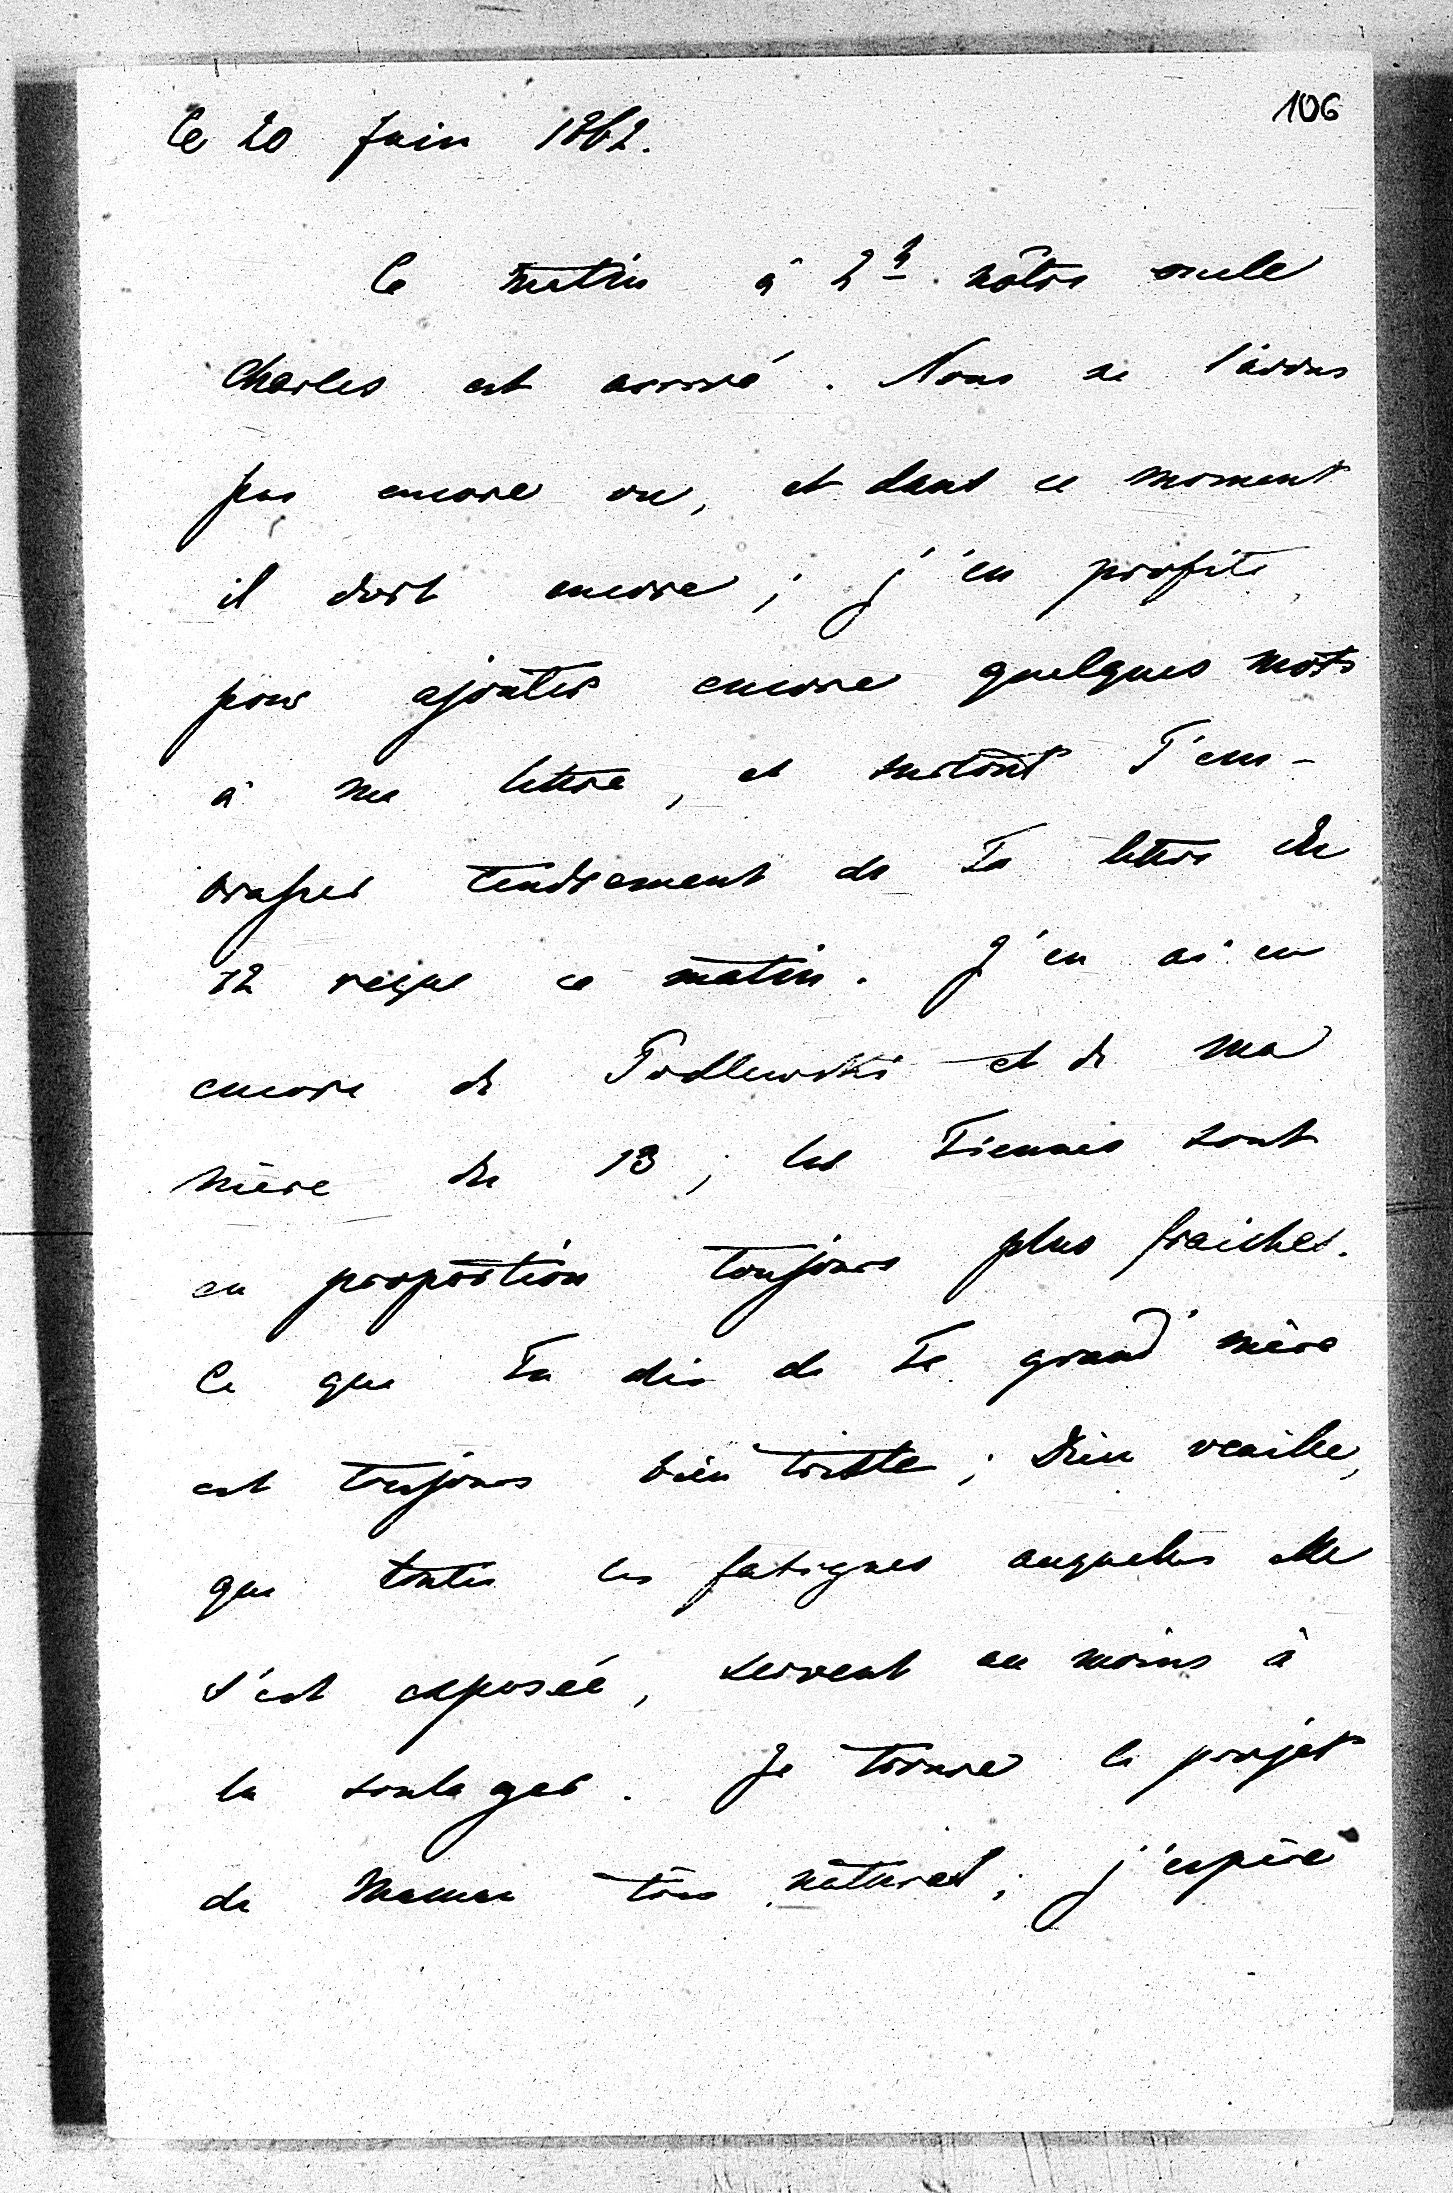 106
le 20 Juin 1862.
Ce matin à 2h. nôtre oncle
Charles est arrivé. Nous ne l'avons
pas encore vu, et dans ce moment
il dort encore; j'en profite
pour ajouter encore quelques mots
à ma lettre, et surtout T'em-
brasser tendrement de Ta lettre du
12 reçue ce matin. J'en ai eu
encore de Podlewski et de ma
mère du 13; les Tiennes sont
en proportion toujours plus fraiches.
Ce que Tu dis de Ta grand'mère
est toujours bien triste; Dieu veuille,
que toutes les fatigues auquelles elle
s'est exposée, servent au moins à
la soulager. Je trouve le projet
de Maman très naturel; j'espère